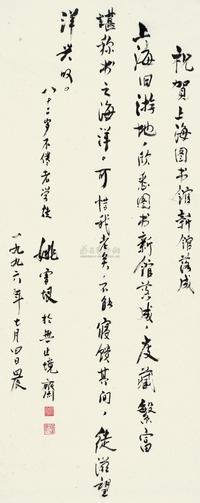 祝贺上海图书馆新馆落成
上海旧游地，欣悉图书新馆落成，庋藏繁富
堪称书之海洋。可惜我老矣，不能寝馈其间，徒滋望
洋兴叹。
八十六岁不倦老学生
姚雪垠 于无止境斋
一九九六年七月四日晨